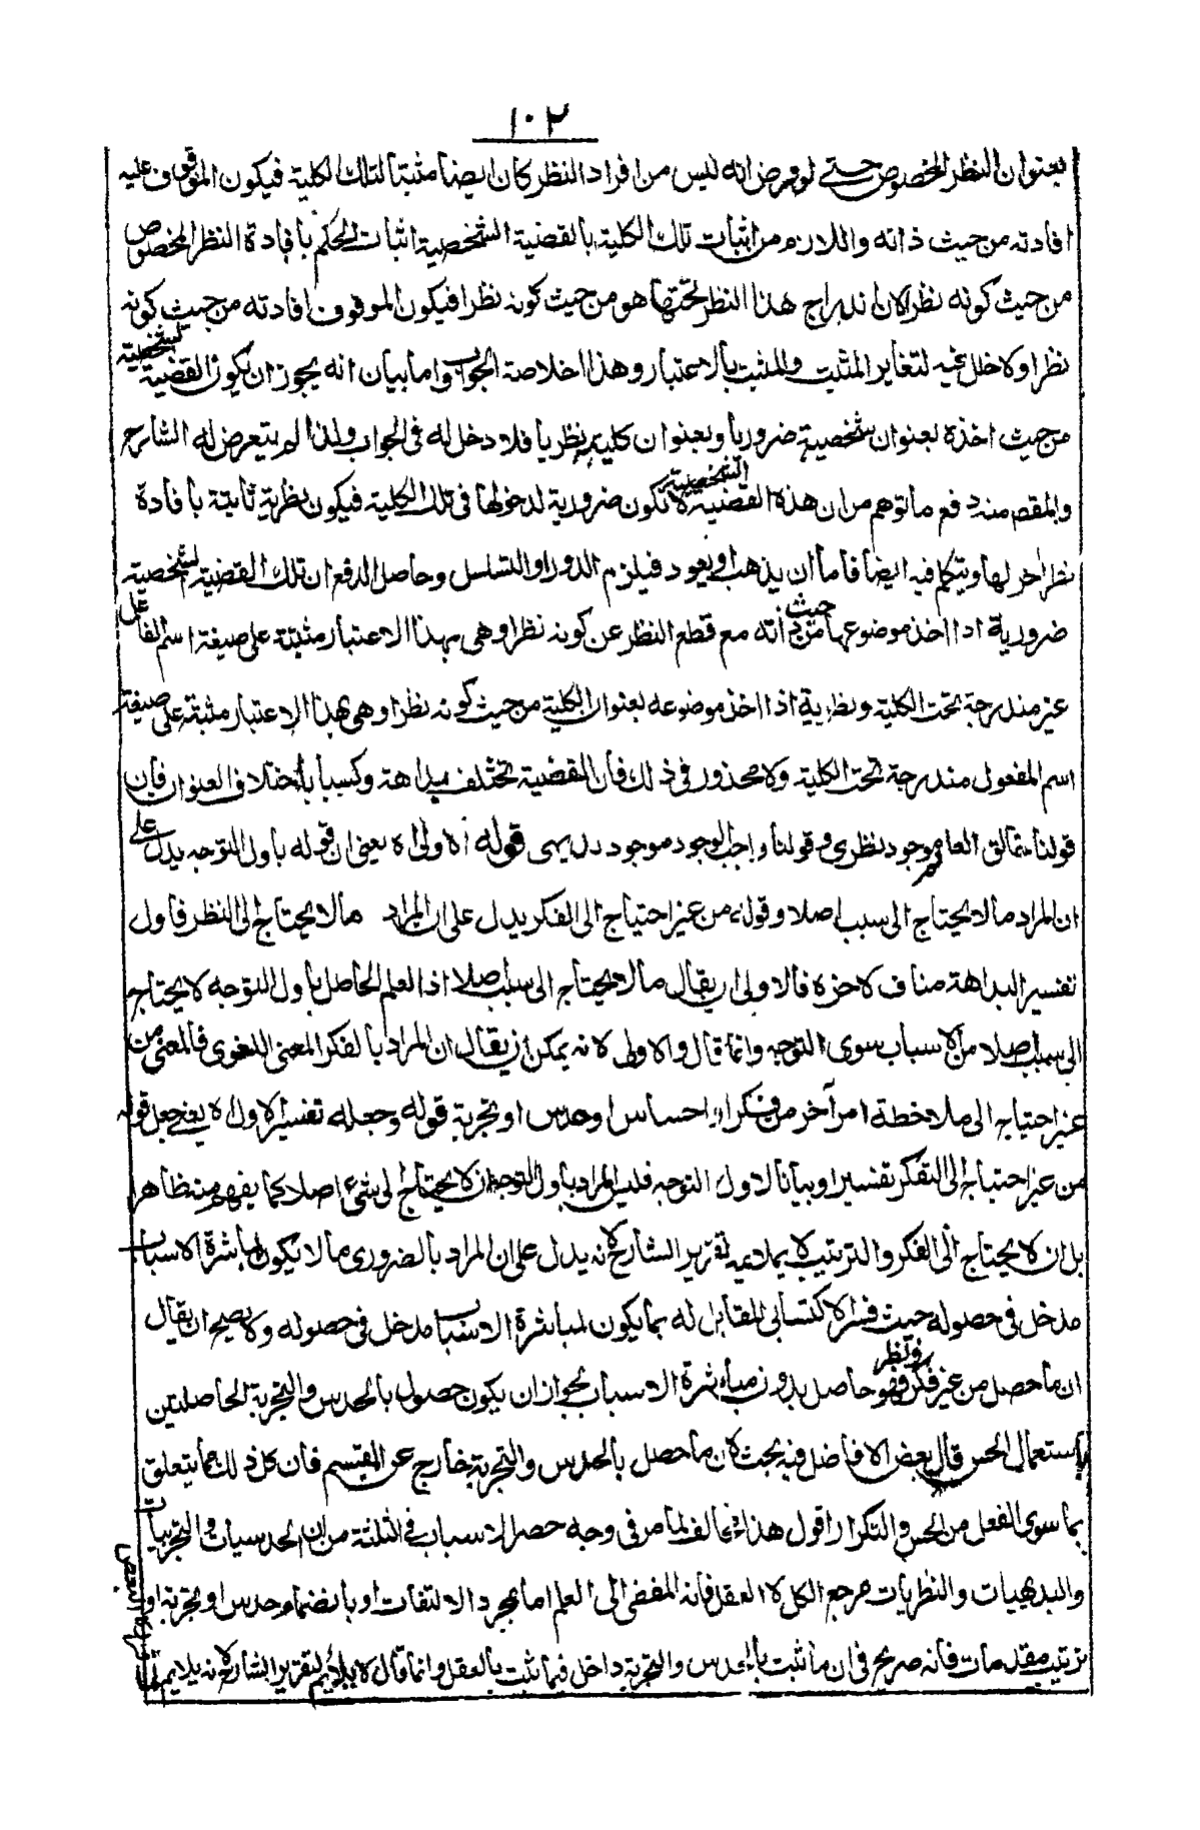 ١٠٢
بعنوان النظر المخصوص حتى لو فرض انه ليس من افراد النظر كان ايضا مثبتا لتلك الكلية فيكون الموقوف عليه
افادته من حيث ذاته واللازم من اثبات تلك الكلية بالقضية الشخصية اثبات الحكم بافادة النظر المخصوص
من حيث كونه نظرا لان اندراج هذا النظر تحتها هو من حيث كونه نظرا فيكون الموقوف افادته من حيث كونه
نظرا ولا خلل فيه لتغاير المثبِت والمثبَت بالاعتبار وهذا خلاصة الجواب واما بيان انه يجوز ان يكون القضية الشخصية
من حيث اخذه بعنوان شخصيته ضروريا وبعنوان كليته نظريا فلا دخل له فى الجواب ولذا لم يتعرض له الشارح
والمقصد منه دفع ما توهم من ان هذه القضية الشخصية لا تكون ضرورية لدخولها فى تلك الكلية فيكون نظرية ثابتة بافادة
نظر اخر لها ويتكلم فيه ايضا فاما ان يذهب او يعود فيلزم الدور او التسلسل وحاصل الدفع ان تلك القضية الشخصية
ضرورية اذا اخذ موضوعها من حيث ذاته مع قطع النظر عن كونه نظرا وهى بهذا الاعتبار مثبتة على صيغة اسم الفاعل
غير مندرجة تحت الكلية ونظرية اذا اخذ موضوعه بعنوان الكلية من حيث كونه نظرا وهى بهذا الاعتبار مثبتة على صيغة
اسم المفعول مندرجة تحت الكلية ولا محذور فى ذلك فان القضية تختلف بداهة وكسبا باختلاف العنوان فان
قولنا خالق العالم موجود نظرى وقولنا واجب الوجود موجود بديهى قوله الاولى اه يعنى ان قوله باول التوجه يدل على
ان المراد ما لا يحتاج الى سبب اصلا وقوله من غير احتياج الى الفكر يدل على ان المراد ما لا يحتاج الى النظر فاول
تفسير البداهة مناف لاخره فالاولى ان يقال ما لا يحتاج الى سبب اصلا اذ العلم الحاصل باول التوجه لا يحتاج
الى سبب اصلا من الاسباب سوى التوجه وانما قال والاولى لانه يمكن ان يقال ان المراد بالفكر المعنى اللغوى فالمعنى من
غير احتياج الى ملاحظة امر آخر من فكر او احساس او حدس او تجربة قوله وجعله تفسيرا لاول اه يعنى جعل قوله
من غير احتياج الى التفكر تفسيرا وبيانا لاول التوجه فليس المراد باول التوجه ان لا يحتاج الى شئ اصلا كما يفهم منه ظاهرا
بل ان لا يحتاج الى الفكر والترتيب لا يملايمه تقرير الشارح لانه يدل على ان المراد بالضرورى ما لا يكون لمباشرة الاسباب
مدخل فى حصوله حيث فسر الاكتسابى المقابل له بما يكون لمباشرة الاسباب مدخل فى حصوله ولا يصح ان يقال
ان ما حصل من غير فكر ونظر فهو حاصل بدون مباشرة الاسباب لجواز ان يكون حصول بالحدس والتجربة الحاصلتين
باستعمال الحس قال بعض الافاضل فيه بحث لان ما حصل بالحدس والتجربة خارج عن القسم فان كل ذلك مما يتعلق
بما سوى الفعل من الحس والتكرار اقول هذا مخالف لما مر فى وجه حصر الاسباب فى الثلثة من ان الحدسيات والتجربيات
والبديهيات والنظريات مرجع الكل الا العقل فانه المفضى الى العلم اما بمجرد الالتفات او بانضمام حدس او تجربة او
ترتيب مقدمات فانه صريح فى ان ما ثبت بالحدس والتجربة داخل فيما ثبت بالعقل وانما قال لا يلايم لتقرير الشارح لانه يلايم